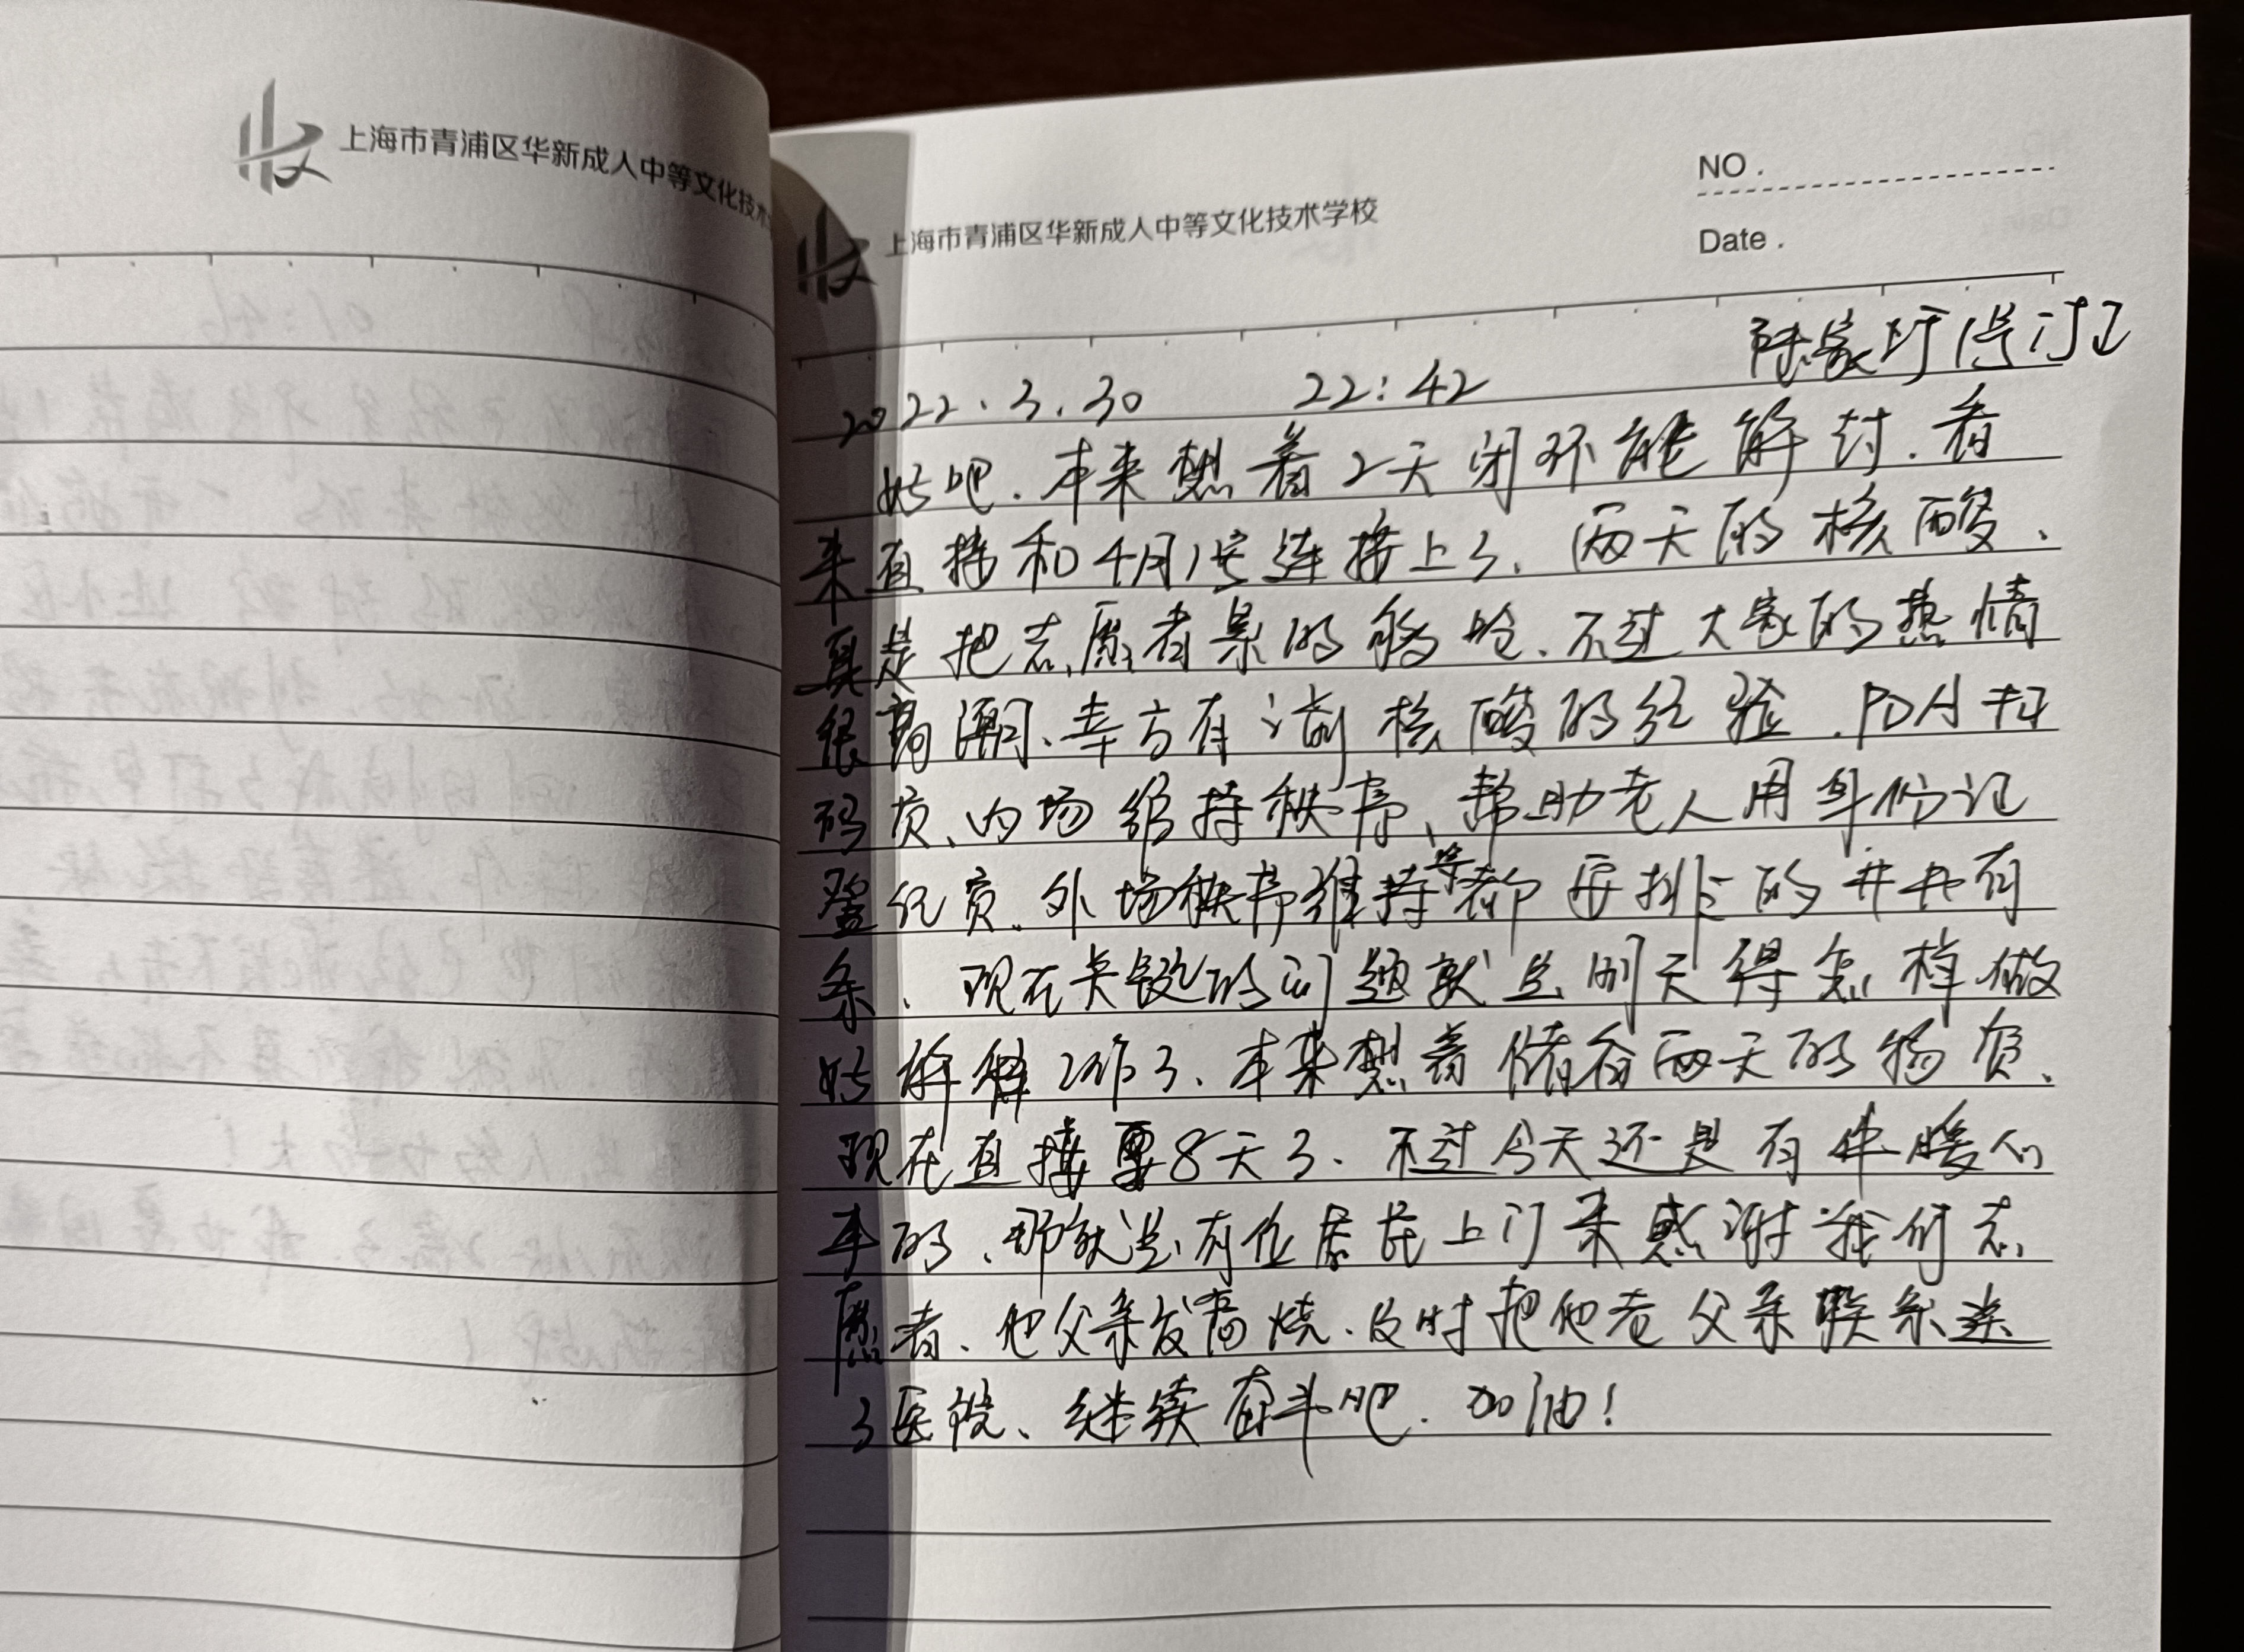 上海市青浦区华新成人中等文化技术
上海市青浦区华新成人中等文化技术学校
NO .
Date .
陆家圩
2022.3.30 22:42
好吧.本来想着2天闭环能解封.看
来直接和4月1号连接上了.两天的核酸、
真是把志愿者累的够呛.不过大家的热情
很高潮、幸亏有测核酸的经验.PDA扫
码员、内场维持秩序、帮助老人用身份证
登记员.外场秩序维持等都安排的井井有
条、现在关键的问题就是明天得怎样做
好解释工作了、本来想着储备两天的物资、
现在直接要8天了.不过今天还是有件暖人
事的、那就是有位居民上门来感谢我们志
愿者、他父亲发高烧.及时把他老父亲联系送
了医院、继续奋斗吧.加油!